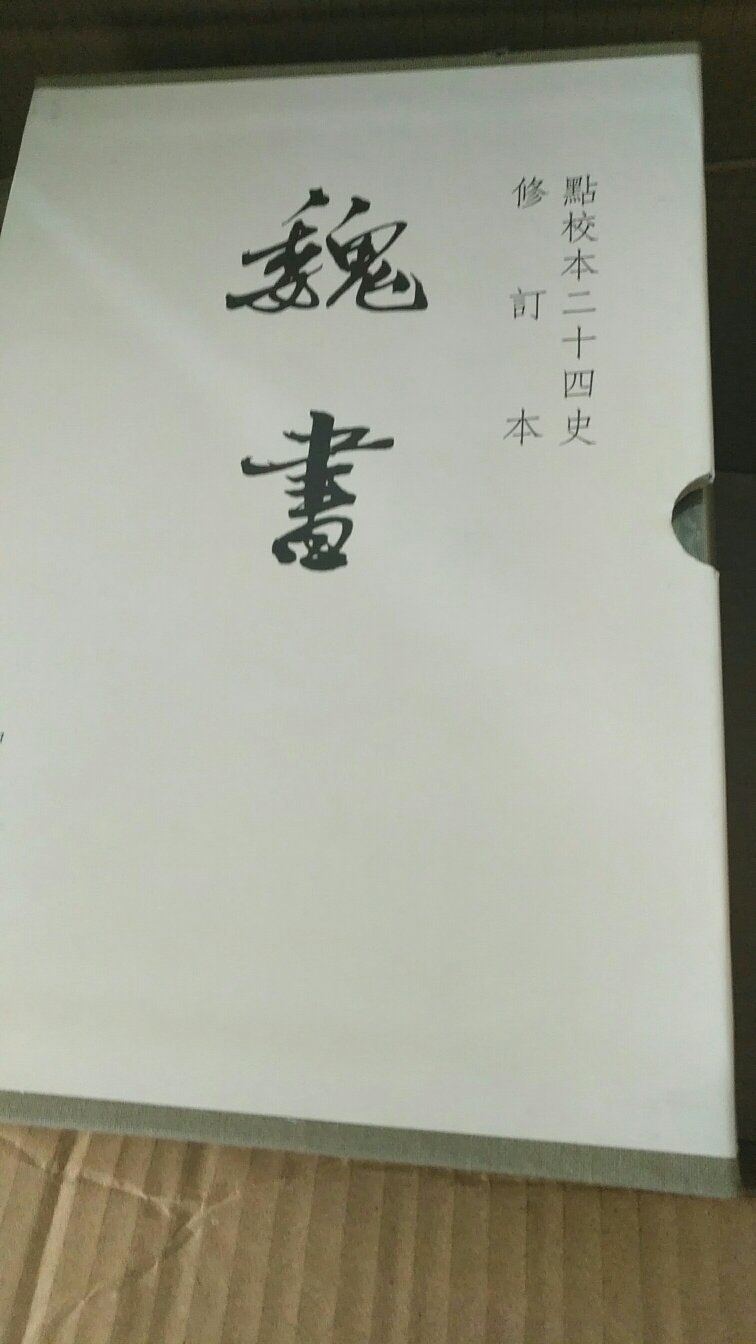 點校本二十四史
修訂本
魏書